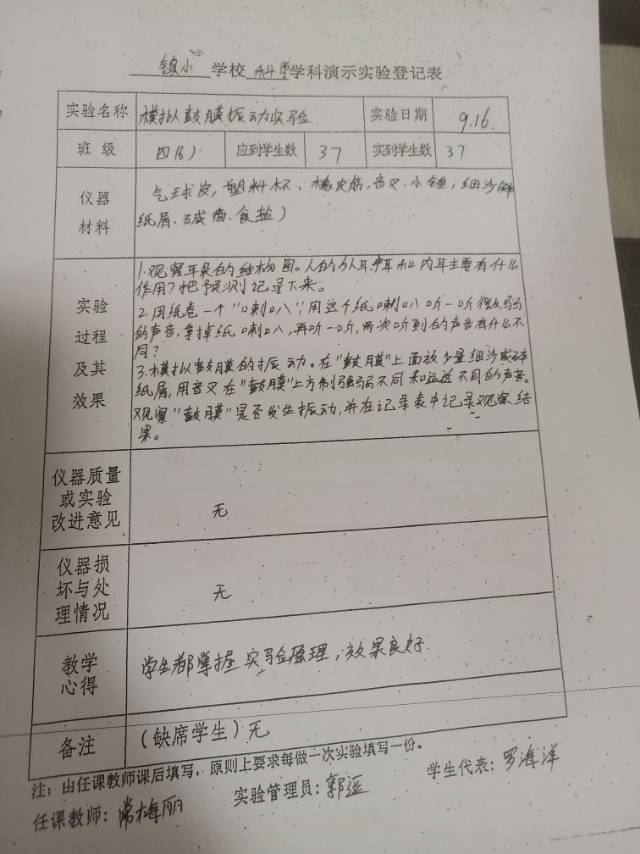 镇小 学校 科学 学科演示实验登记表
实验名称 模拟鼓膜振动实验 实验日期 9.16.
班级 四(6) 应到学生数 37 实到学生数 37
仪器材料 气球皮,塑料杯、橡皮筋,音叉、小锤,细沙(碎
纸屑、胡椒面、食盐)
实验过程及其效果
1.观察耳朵的结构图。人的外耳、中耳和内耳主要有什么
作用?把预测记录下来。
2.用纸卷一个“喇叭”,用这个纸喇叭听一听很微弱
的声音,拿掉纸喇叭,再听一听,两次听到的声音有什么不
同?
3.模拟鼓膜的振动。在“鼓膜”上面放少量细沙或碎
纸屑,用音叉在“鼓膜”上方制强弱不同和远近不同的声音。
观察“鼓膜”是否发生振动,并在记录表中记录观察结
果。
仪器质量或实验改进意见 无
仪器损坏与处理情况 无
教学心得 学生都掌握实验原理,效果良好.
备注 (缺席学生)无
注:由任课教师课后填写,原则上要求每做一次实验填写一份。
任课教师:常梅丽 实验管理员: 学生代表:罗海洋